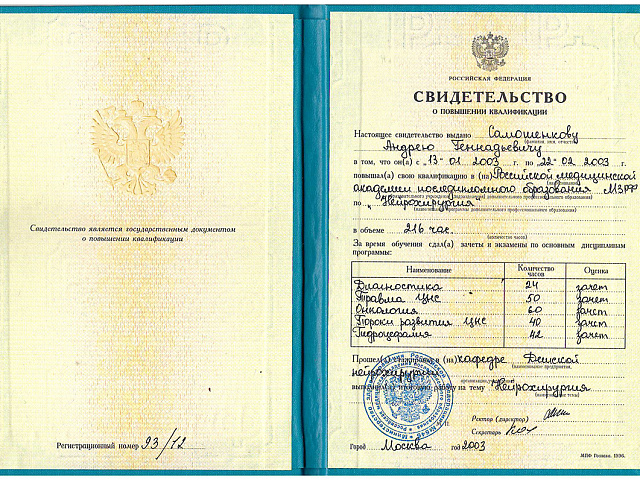 Свидетельство является государственным документом
о повышении квалификации
Регистрационный номер 93/12
РОССИЙСКАЯ ФЕДЕРАЦИЯ
СВИДЕТЕЛЬСТВО
О ПОВЫШЕНИИ КВАЛИФИКАЦИИ
Настоящее свидетельство выдано Самошенкову
(фамилия, имя, отчество)
Андрею Геннадьевичу
в том, что он(а) с «13» 01 2003 г. по «22» 02 2003 г.
повышал(а) свою квалификацию в (на) Российской медицинской
академии последипломного образования МЗ РФ
по „Нейрохирургия"
(наименование программы дополнительного профессионального образования)
в объеме 216 час.
(количество часов)
За время обучения сдал(а) зачеты и экзамены по основным дисциплинам
программы:
Наименование Количество часов Оценка
Диагностика 24 зачет
Травма ЦНС 50 зачет
Онкология 60 зачет
Пороки развития ЦНС 40 зачет
Гидроцефалия 42 зачет
Прошел(а) стажировку в (на) кафедре Детской
(наименование предприятия,
нейрохирургии
выполнил(а) итоговую работу на тему „Нейрохирургия
Ректор (директор)
Секретарь
Город Москва год 2003
МПФ Гознака. 1996.